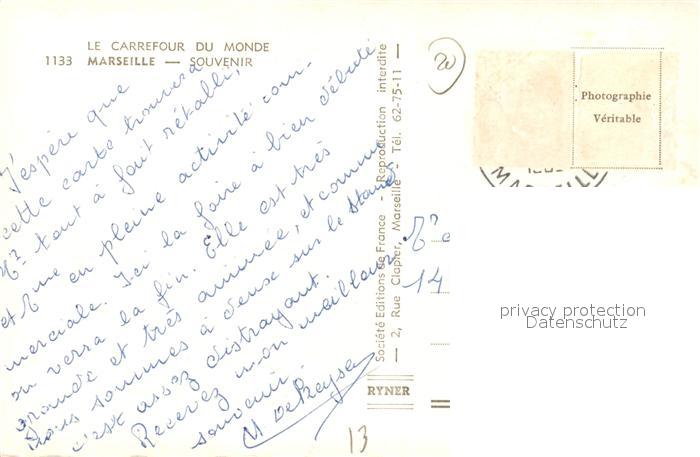 LE CARREFOUR DU MONDE
1133 MARSEILLE — SOUVENIR
J'espère que
cette carte trouvera
Mr tout à fait rétabli,
et Mme en pleine activité com-
merciale. Ici la foire a bien débuté
on verra la fin. Elle est très
grande et très animée, et comme
nous sommes à deux sur le stand
c'est assez distrayant.
Recevez mon meilleur
souvenir.
Société Editions de France - Reproduction interdite
— 2, Rue Clapier, Marseille - Tél. 62-75-11 —
RYNER
20
Photographie
Véritable
MARSEILLE
14
privacy protection
Datenschutz
13